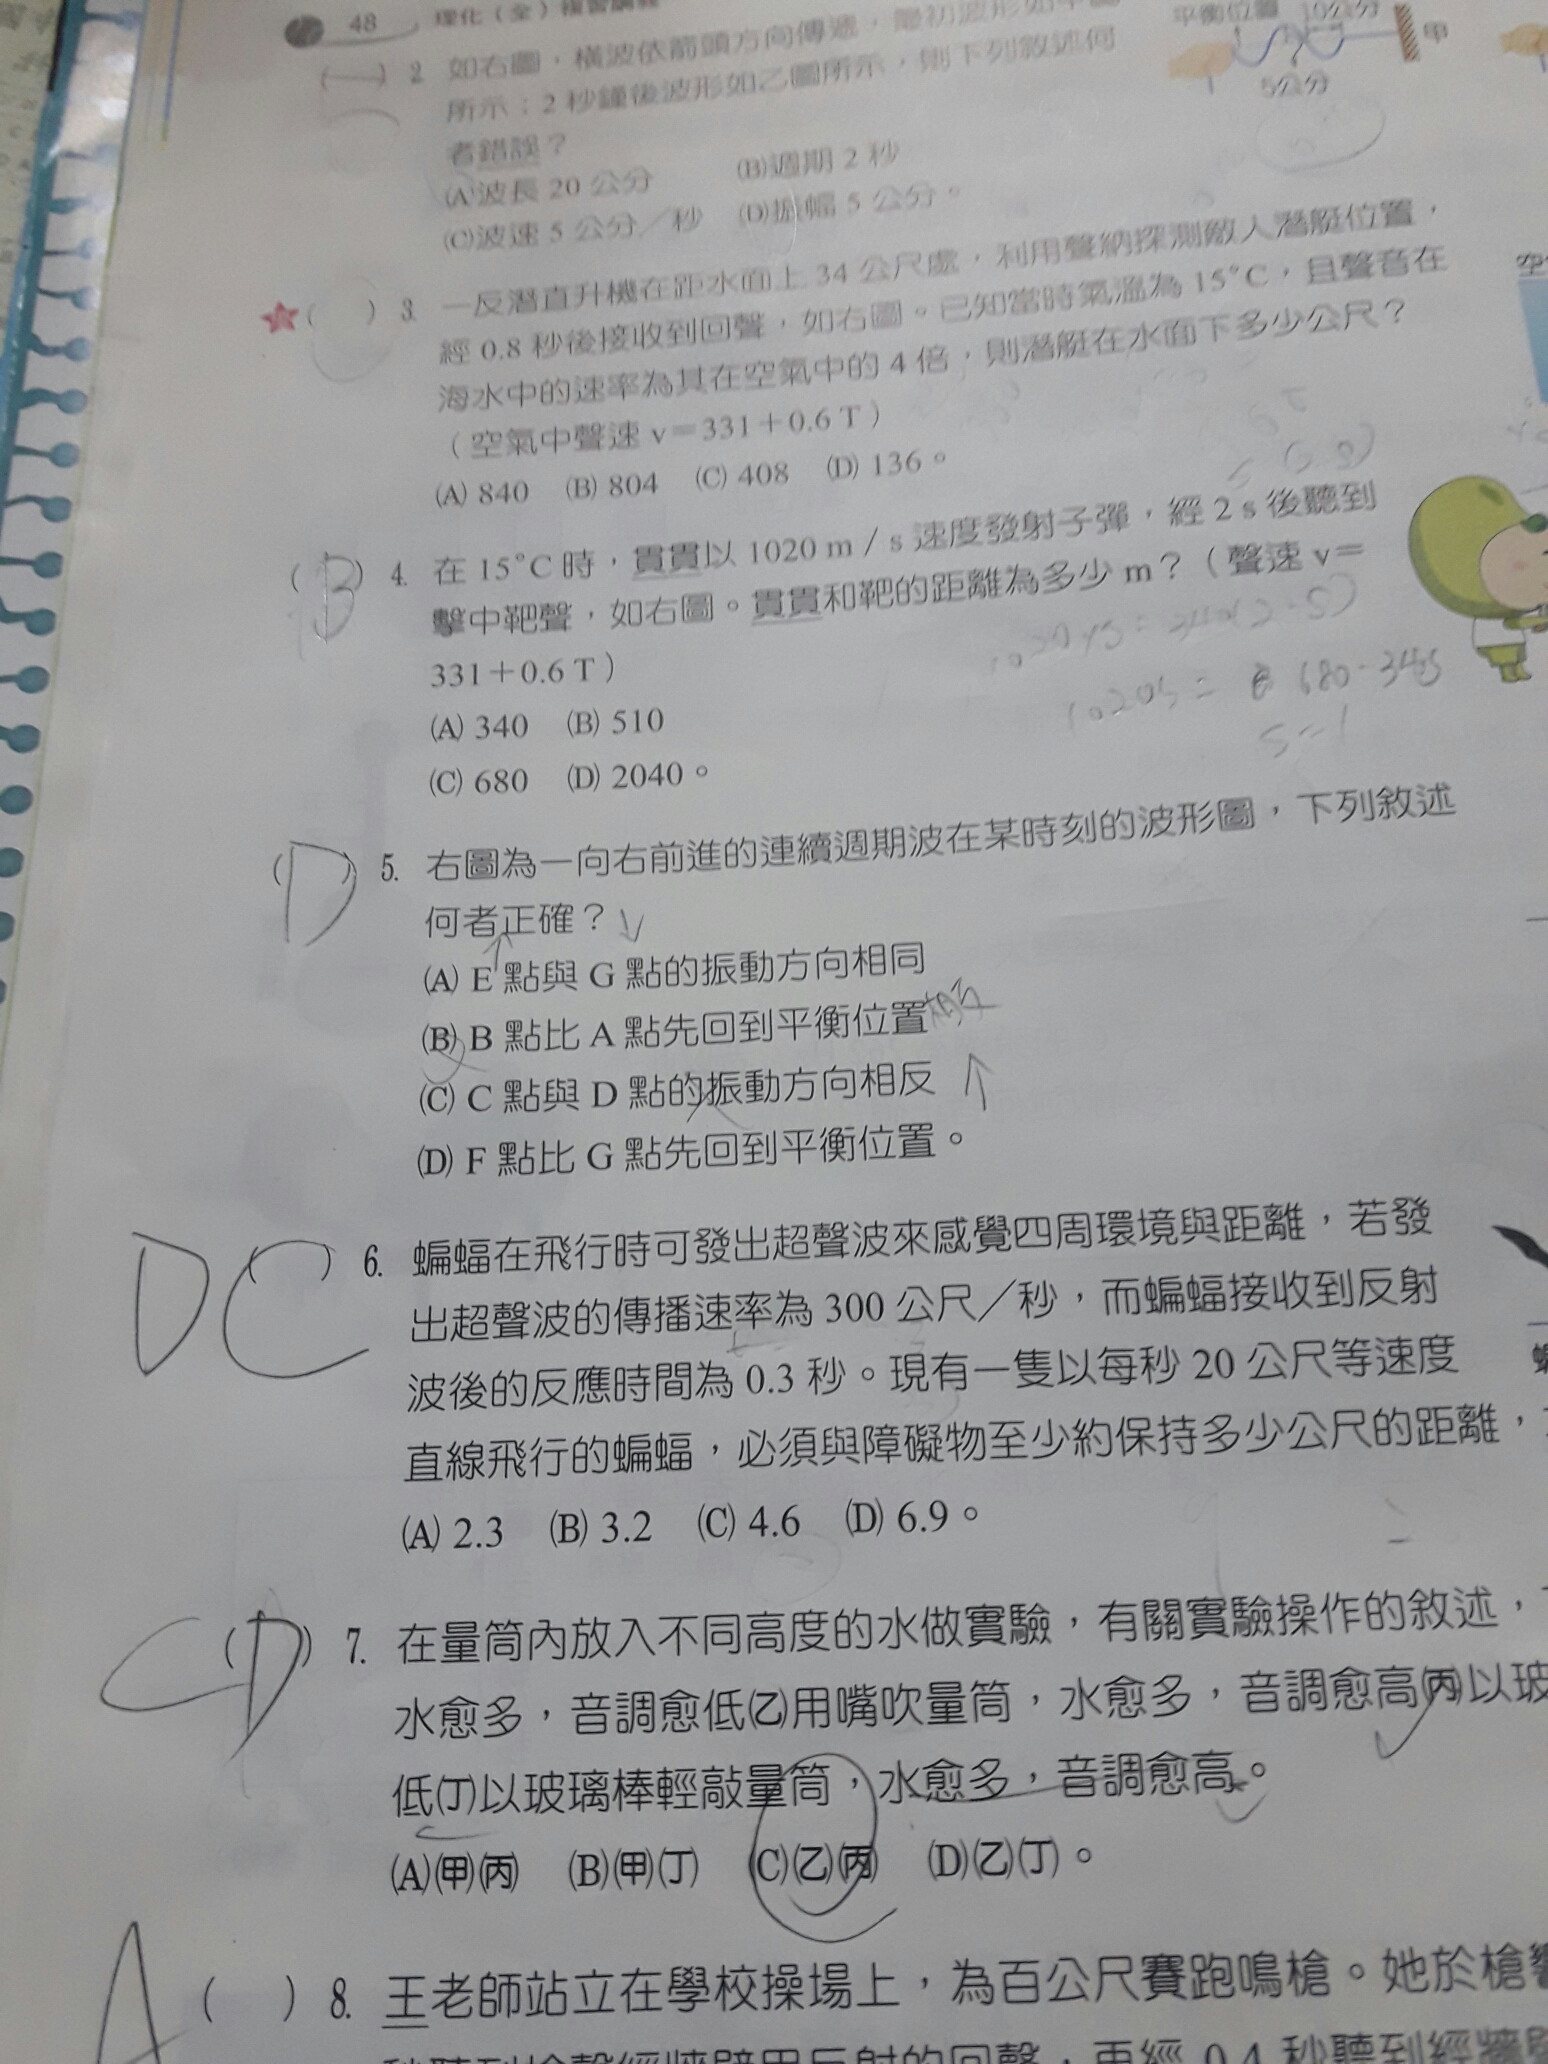 48 理化（全）複習講義
2. 如右圖，橫波依箭頭方向傳遞，最初波形如甲圖
所示；2 秒鐘後波形如乙圖所示，則下列敘述何
者錯誤？
(A)波長 20 公分 (B)週期 2 秒
(C)波速 5 公分／秒 (D)振幅 5 公分。
平衡位置 10公分
甲
5公分
( ) 3. 一反潛直升機在距水面上 34 公尺處，利用聲納探測敵人潛艇位置，
經 0.8 秒後接收到回聲，如右圖。已知當時氣溫為 15°C，且聲音在
海水中的速率為其在空氣中的 4 倍，則潛艇在水面下多少公尺？
（空氣中聲速 v＝331＋0.6 T）
(A) 840 (B) 804 (C) 408 (D) 136。
(B) 4. 在 15°C 時，貫貫以 1020 m／s 速度發射子彈，經 2 s 後聽到
擊中靶聲，如右圖。貫貫和靶的距離為多少 m？（聲速 v＝
331＋0.6 T）
(A) 340 (B) 510
(C) 680 (D) 2040。
(D) 5. 右圖為一向右前進的連續週期波在某時刻的波形圖，下列敘述
何者正確？
(A) E 點與 G 點的振動方向相同
(B) B 點比 A 點先回到平衡位置
(C) C 點與 D 點的振動方向相反
(D) F 點比 G 點先回到平衡位置。
D C ( ) 6. 蝙蝠在飛行時可發出超聲波來感覺四周環境與距離，若發
出超聲波的傳播速率為 300 公尺／秒，而蝙蝠接收到反射
波後的反應時間為 0.3 秒。現有一隻以每秒 20 公尺等速度
直線飛行的蝙蝠，必須與障礙物至少約保持多少公尺的距離，
(A) 2.3 (B) 3.2 (C) 4.6 (D) 6.9。
C (D) 7. 在量筒內放入不同高度的水做實驗，有關實驗操作的敘述，
水愈多，音調愈低(乙)用嘴吹量筒，水愈多，音調愈高(丙)以玻
低(丁)以玻璃棒輕敲量筒，水愈多，音調愈高。
(A)(甲)(丙) (B)(甲)(丁) (C)(乙)(丙) (D)(乙)(丁)。
A ( ) 8. 王老師站立在學校操場上，為百公尺賽跑鳴槍。她於槍響
秒聽到槍聲經牆壁甲反射的回聲，再經 0.4 秒聽到經牆壁